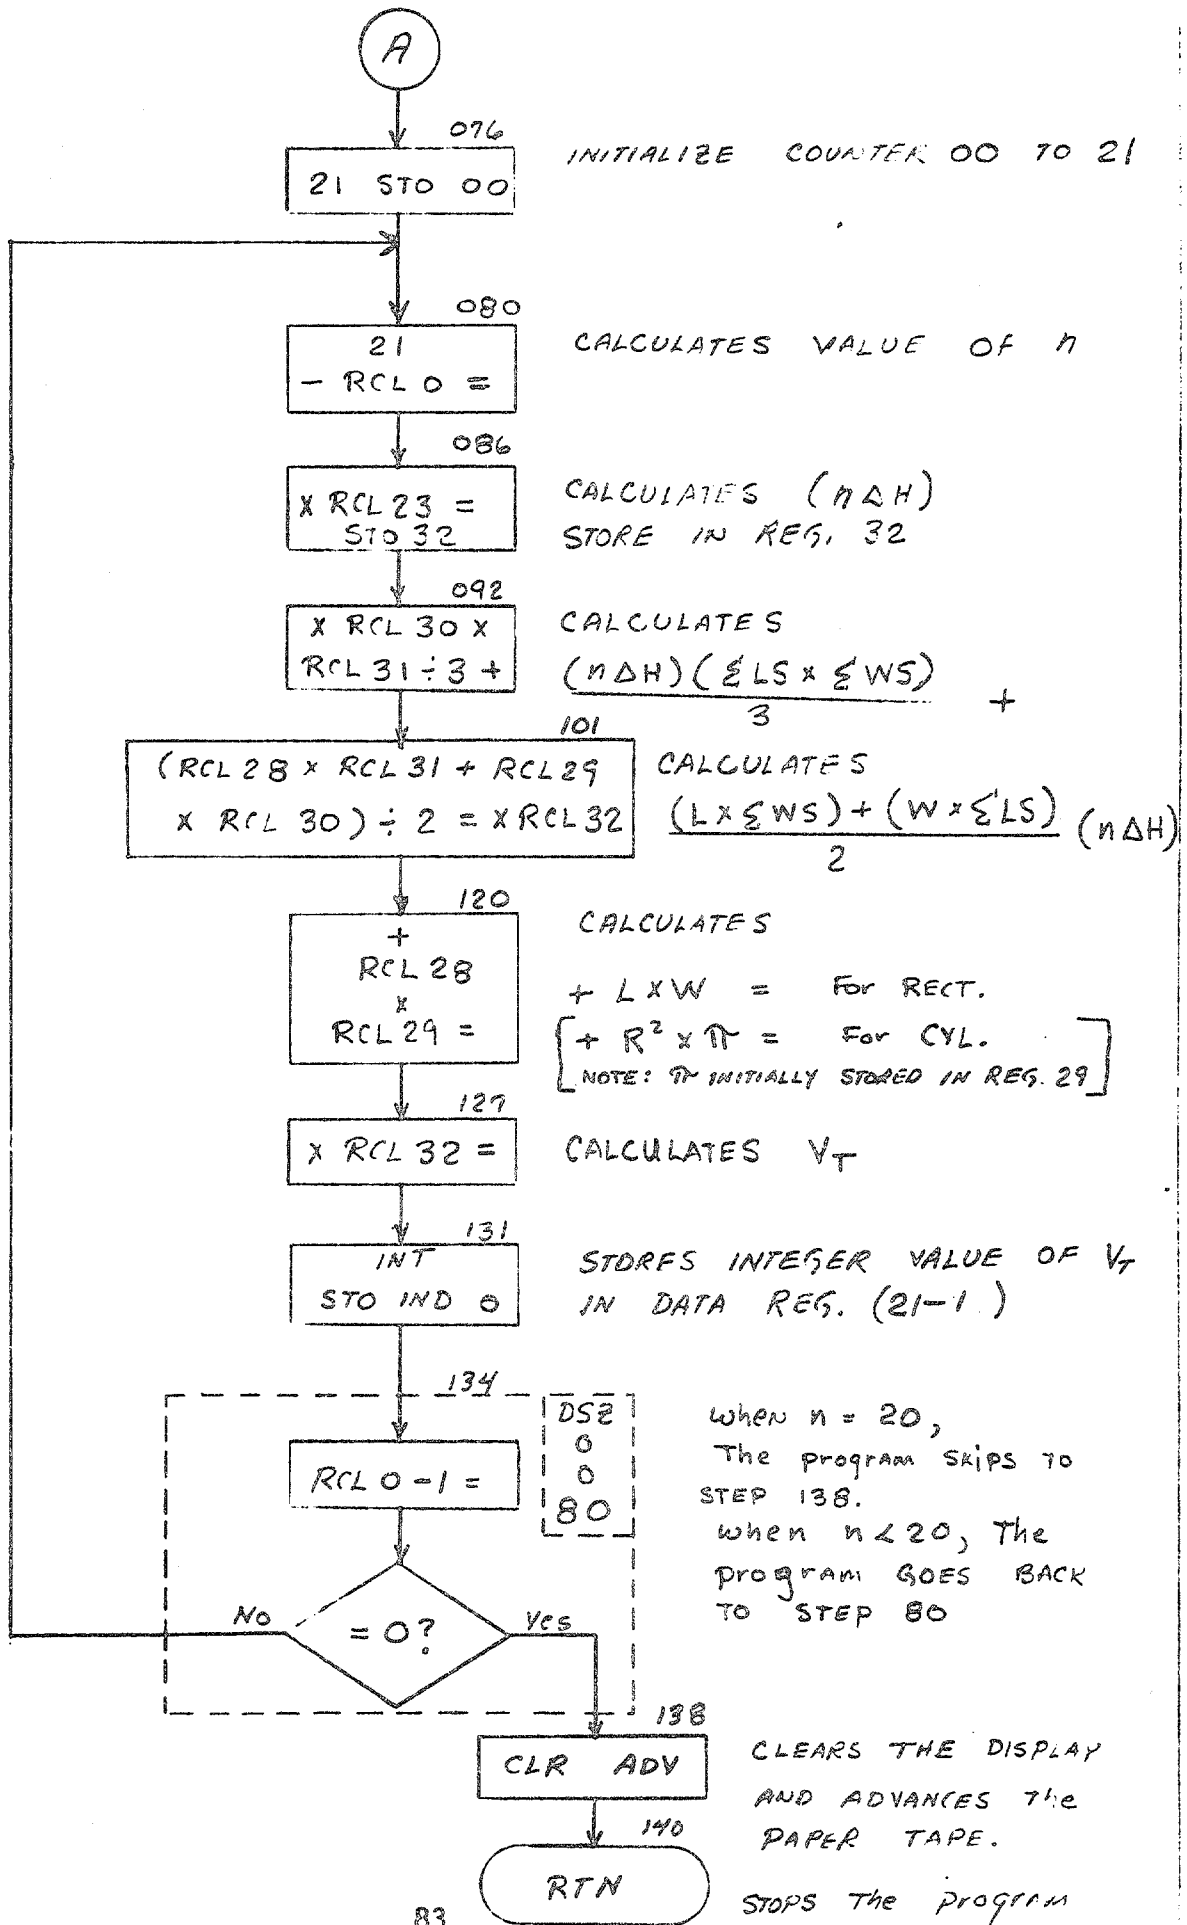 A
076
21 STO 00
INITIALIZE COUNTER 00 TO 21
080
21
- RCL 0 =
CALCULATES VALUE OF n
086
X RCL 23 =
STO 32
CALCULATES (nΔH)
STORE IN REG. 32
092
X RCL 30 X
RCL 31 ÷ 3 +
CALCULATES
(nΔH)(ΣLS x ΣWS)
3
+
101
(RCL 28 x RCL 31 + RCL 29
x RCL 30) ÷ 2 = x RCL 32
CALCULATES
(L x ΣWS) + (W x ΣLS) (nΔH)
2
120
+
RCL 28
x
RCL 29 =
CALCULATES
+ L X W = For RECT.
[+ R² x π = For CYL.
NOTE: π INITIALLY STORED IN REG. 29]
127
X RCL 32 =
CALCULATES V_T
131
INT
STO IND 0
STORES INTEGER VALUE OF V_T
IN DATA REG. (21-1)
134
DSZ
0
0
80
RCL 0 - 1 =
when n = 20,
The program SKIPS TO
STEP 138.
when n < 20, The
program GOES BACK
TO STEP 80
No
= 0?
Yes
138
CLR ADV
CLEARS THE DISPLAY
AND ADVANCES The
PAPER TAPE.
140
RTN
STOPS The program
83